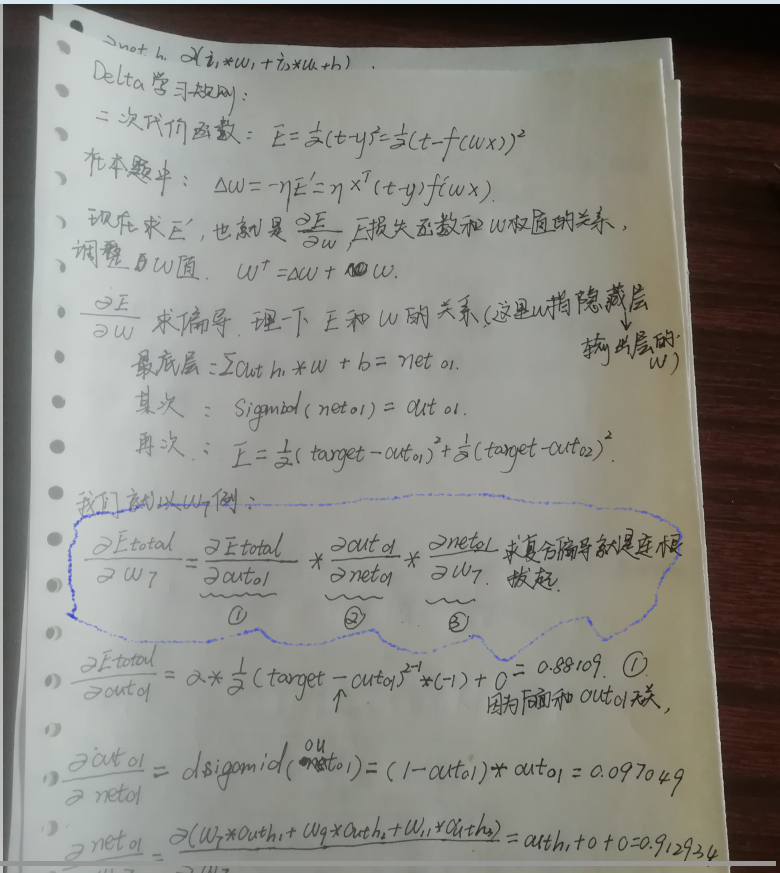 ∂net h1 ∂(i1*w1+i2*w2+b).
Delta学习规则:
二次代价函数: E=½(t-y)²=½(t-f(wx))²
在本题中: Δw=-ηE′=ηXᵀ(t-y)f′(wx).
现在求E′,也就是∂E/∂w,E损失函数和w权值的关系,
调整w值. w⁺=Δw+w.
∂E/∂w 求偏导.理一下E和w的关系(这里w指隐藏层
↓
输出层的w)
最底层:Σout h1*w+b=net o1.
其次: sigmoid(net o1)=out o1.
再次: E=½(target-out o1)²+½(target-out o2)².
我们就以w7例:
∂Etotal/∂w7=∂Etotal/∂out o1*∂out o1/∂net o1*∂net o1/∂w7. 求复合偏导就是连根
拔起.
① ② ③
∂Etotal/∂out o1=2*½(target-out o1)²⁻¹*(-1)+0=0.88109. ①
↑ 因为后面和out o1无关,
∂out o1/∂net o1=dsigomid(out o1)=(1-out o1)*out o1=0.097049
∂net o1/∂w7=∂(w7*outh1+w9*outh2+w11*outh3)/∂w7=outh1+0+0=0.912934